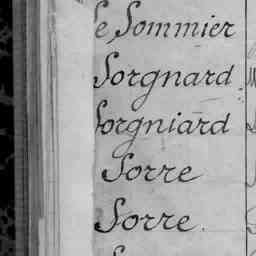 le Sommier
Sorgnard
Sorgniard
Sorre
Sorre.